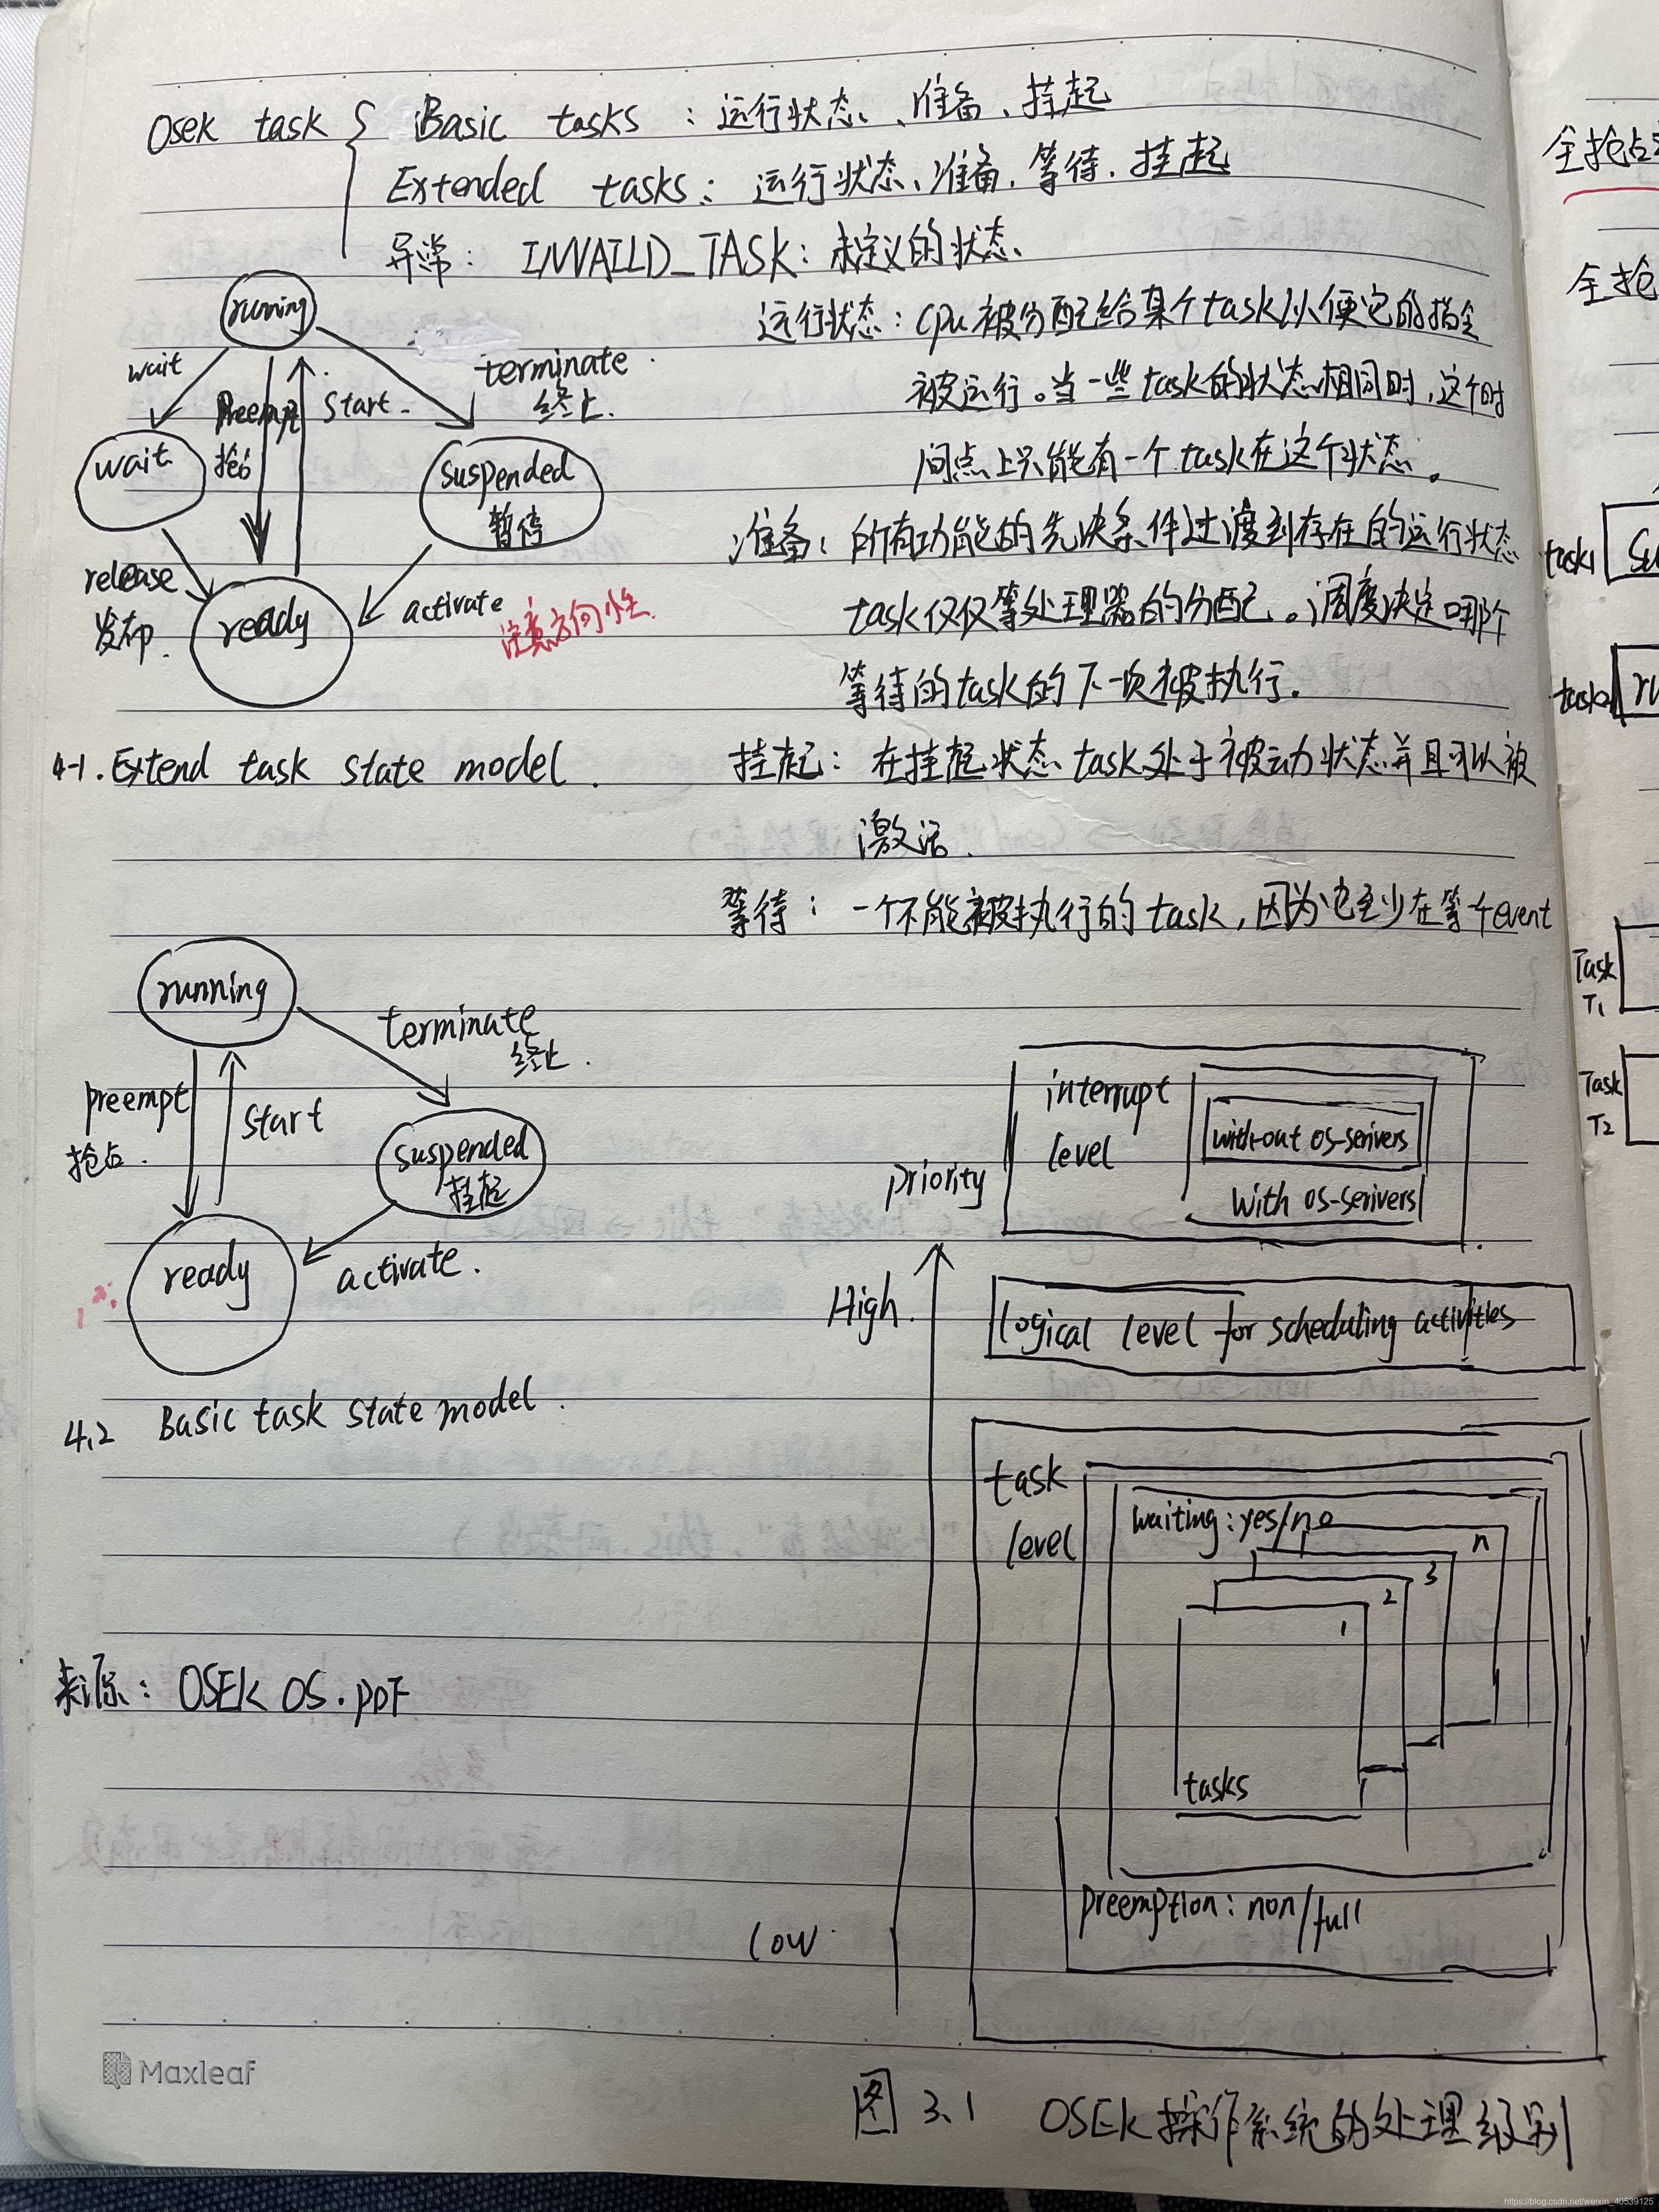 Osek task { Basic tasks : 运行状态、准备、挂起
Extended tasks : 运行状态、准备、等待、挂起
异常: INVAILD_TASK: 未定义的状态
running
wait
Preempt
抢占
Start
terminate
终止
wait
suspended
暂停
release
发布
ready
activate
注意方向性
4-1. Extend task state model.
运行状态: cpu被分配给某个task以便它的指令
被运行。当一些task的状态相同时,这个时
间点上只能有一个task在这个状态。
准备: 所有功能的先决条件过渡到存在的运行状态
task仅仅等处理器的分配。调度决定哪个
等待的task的下一次被执行.
挂起: 在挂起状态task处于被动状态并且可以被
激活.
等待: 一个不能被执行的task,因为它至少在等个event
running
preempt
抢占.
Start
terminate
终止.
suspended
挂起
ready
activate.
4.2 Basic task state model.
来源: OSEK OS.PDF
priority
High.
low
interrupt
level
without os-serivers
with os-serivers
logical level for scheduling activities
task
level
waiting: yes/no
n
3
2
1
tasks
preemption: non/full
图3.1 OSEK操作系统的处理级别
全抢占
全抢
task1
su
task2
ru
Task
T1
Task
T2
Maxleaf
https://blog.csdn.net/weixin_40539125